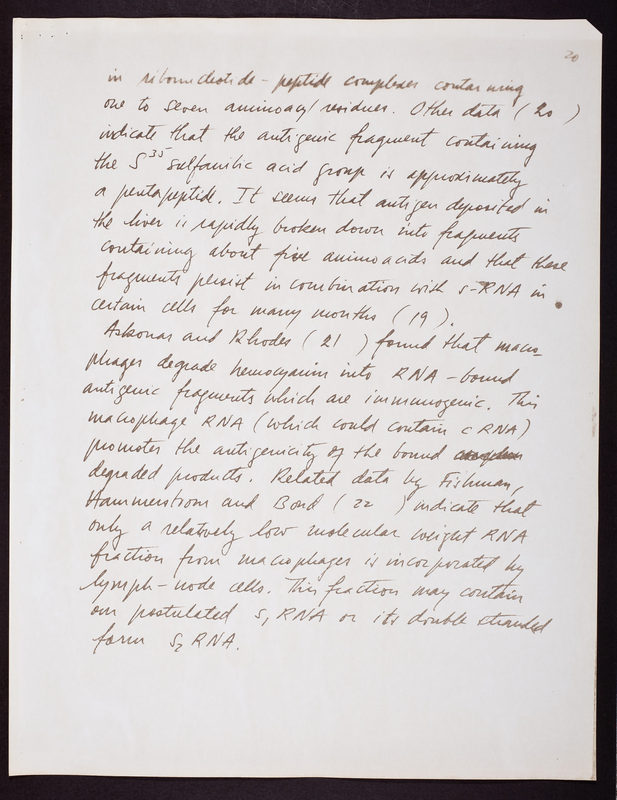 20
in ribonucleotide - peptide complexes containing
one to seven aminoacyl residues. Other data (20 )
indicate that the antigenic fragment containing
the S35 sulfanilic acid group is approximately
a pentapeptide. It seems that antigen deposited in
the liver is rapidly broken down into fragments
containing about five aminoacids and that these
fragments persist in combination with s-RNA in
certain cells for many months (19).
Askonas and Rhodes (21 ) found that macro-
phages degrade hemocyanin into RNA-bound
antigenic fragments which are immunogenic. This
macrophage RNA (which could contain cRNA)
promotes the antigenicity of the bound
degraded products. Related data by Fishman,
Hammerstrom and Bond (22 ) indicate that
only a relatively low molecular weight RNA
fraction from macrophages is incorporated by
lymph-node cells. This fraction may contain
our postulated S1 RNA or its double stranded
form S2 RNA.